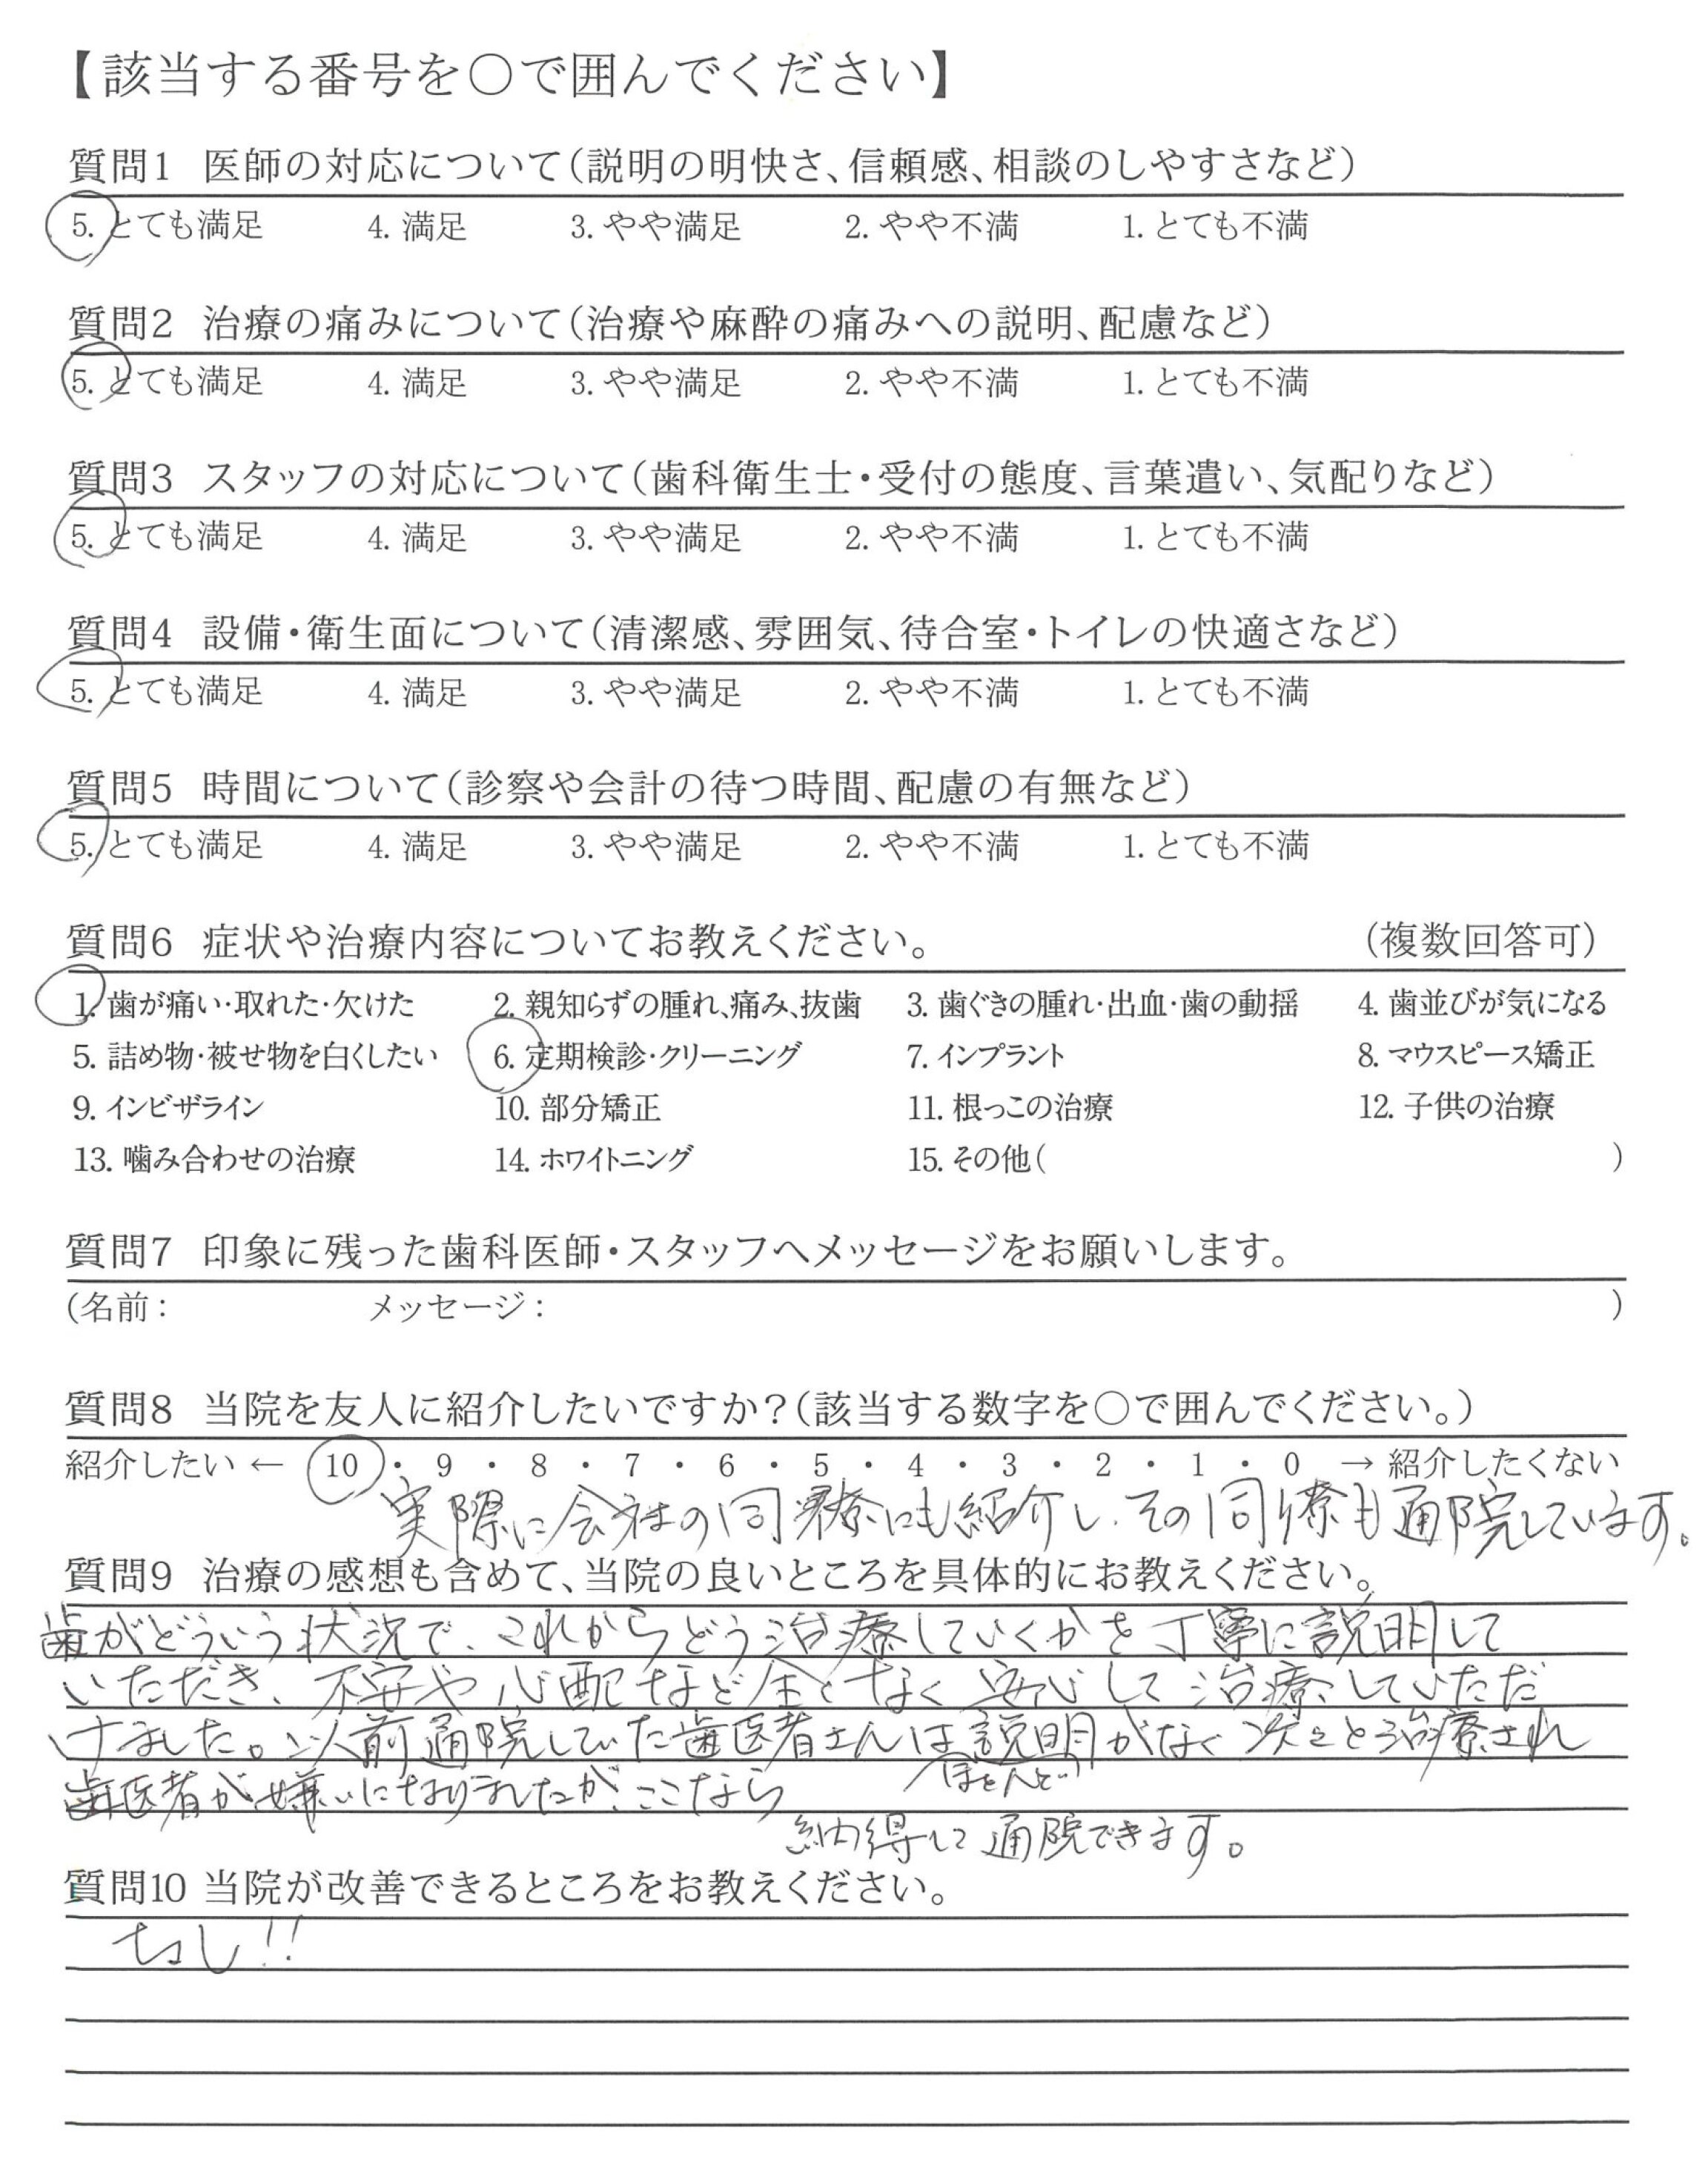 【該当する番号を〇で囲んでください】
質問1 医師の対応について（説明の明快さ、信頼感、相談のしやすさなど）
5. とても満足 4. 満足 3. やや満足 2. やや不満 1. とても不満
質問2 治療の痛みについて（治療や麻酔の痛みへの説明、配慮など）
5. とても満足 4. 満足 3. やや満足 2. やや不満 1. とても不満
質問3 スタッフの対応について（歯科衛生士・受付の態度、言葉遣い、気配りなど）
5. とても満足 4. 満足 3. やや満足 2. やや不満 1. とても不満
質問4 設備・衛生面について（清潔感、雰囲気、待合室・トイレの快適さなど）
5. とても満足 4. 満足 3. やや満足 2. やや不満 1. とても不満
質問5 時間について（診察や会計の待つ時間、配慮の有無など）
5. とても満足 4. 満足 3. やや満足 2. やや不満 1. とても不満
質問6 症状や治療内容についてお教えください。 （複数回答可）
1. 歯が痛い・取れた・欠けた 2. 親知らずの腫れ、痛み、抜歯 3. 歯ぐきの腫れ・出血・歯の動揺 4. 歯並びが気になる
5. 詰め物・被せ物を白くしたい 6. 定期検診・クリーニング 7. インプラント 8. マウスピース矯正
9. インビザライン 10. 部分矯正 11. 根っこの治療 12. 子供の治療
13. 噛み合わせの治療 14. ホワイトニング 15. その他（ ）
質問7 印象に残った歯科医師・スタッフへメッセージをお願いします。
（名前： メッセージ： ）
質問8 当院を友人に紹介したいですか？（該当する数字を〇で囲んでください。）
紹介したい ← 10 ・ 9 ・ 8 ・ 7 ・ 6 ・ 5 ・ 4 ・ 3 ・ 2 ・ 1 ・ 0 → 紹介したくない
実際に会社の同僚にも紹介し、その同僚も通院しています。
質問9 治療の感想も含めて、当院の良いところを具体的にお教えください。
歯がどういう状況で、これからどう治療していくかを丁寧に説明して
いただき、不安や心配など全くなく安心して治療していただ
けました。以前通院していた歯医者さんは説明がなく次々と治療され
ほとんど
歯医者が嫌いになりましたが、ここなら
納得して通院できます。
質問10 当院が改善できるところをお教えください。
なし!!